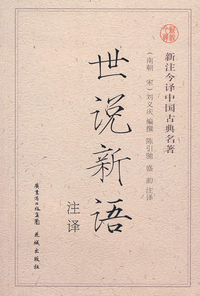 新注今译中国古典名著
（南朝 宋）刘义庆 编撰 陈引驰 盛韵 注译
世说新语
注译
广东省出版集团
花城出版社